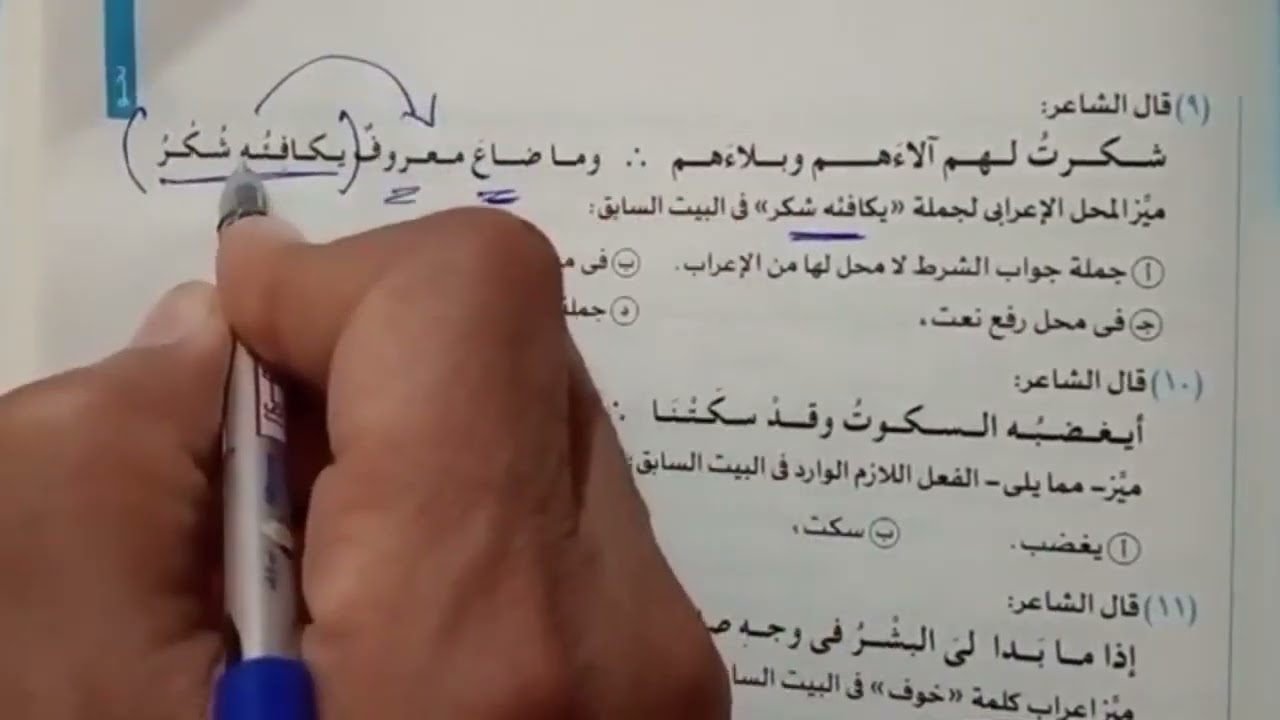 نحو
(٩) قال الشاعر:
شـكـرتُ لـهـم آلاءَهـم وبـلاءَهـم ∴ ومـا ضـاعَ مـعـروفٌ يـكـافِـئُـه شُـكْـرُ
ميِّز المحل الإعرابى لجملة «يكافئه شكر» فى البيت السابق:
أ جملة جواب الشرط لا محل لها من الإعراب. ب فى
جـ فى محل رفع نعت. د جملة
(١٠) قال الشاعر:
أيـغـضـبُـه الـسـكـوتُ وقـدْ سـكَـتْـنَـا ∴
ميِّز- مما يلى- الفعل اللازم الوارد فى البيت السابق:
أ يغضب. ب سكت.
(١١) قال الشاعر:
إذا مـا بَـدا لـىَ البـشْـرُ فى وجـهِ
ميِّز إعراب كلمة «خوف» فى البيت